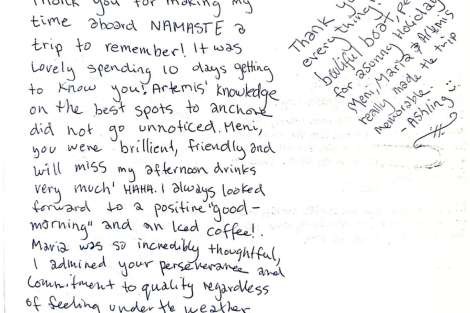 Thank you for making my
time aboard NAMASTE a
trip to remember! It was
lovely spending 10 days getting
to know you! Artemis' knowledge
on the best spots to anchore
did not go unnoticed. Meni,
you were brillient, friendly and
will miss my afternoon drinks
very much' HAHA. I always looked
forward to a positive "good-
morning" and an Iced coffee!.
Maria was so incredibly thoughtful,
I admired your perseverance and
commitment to quality regardless
of feeling under the weather
Thank you
everything!
beautiful boat, pe
for a sunny Holiday
Meni, Maria & Artemis
really made the trip
memorable
- Ashling :)